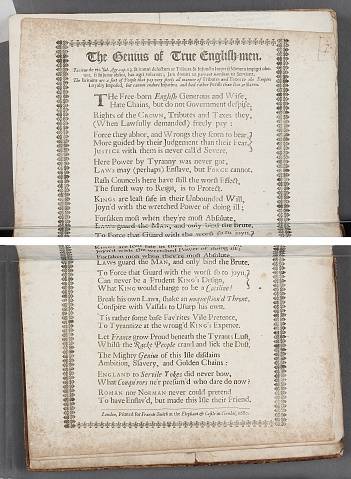 The Genius of True English-men.
The Free-born English Generous and Wise,
Hate Chains, but do not Government despise,
Rights of the CROWN, Tributes and Taxes they,
(When Lawfully demanded) freely pay:
Force they abhor, and Wrongs they scorn to bear,
More guided by their Judgement than their Fear,
JUSTICE with them is never call'd Severe,
Here Power by Tyranny was never got,
LAWS may (perhaps) Enslave, but FORCE cannot.
Rash Councels here have still the worst Effect,
The surest way to Reign, is to Protect.
KINGS are least safe in their Unbounded Will,
Joyn'd with the wretched Power of doing ill;
Forsaken most when they're most Absolute,
LAWS guard the MAN, and only bind the Brute,
To Force that Guard with the worst foe to joyn,
KINGS are least safe in their
Joyn'd with the wretched Power of doing ill;
Forsaken most when they're most Absolute,
LAWS guard the MAN, and only bind the Brute,
To Force that Guard with the worst foe to joyn,
Can never be a Prudent KING's Design,
What KING would change to be a
Break his own Laws, shake an unquestion'd Throne,
Conspire with Vassals to Usurp his own.
'Tis rather some base Fav'rites Vile Pretence,
To Tyrannize at the wrong'd KING's Expence.
Let France grow Proud beneath the Tyrants Lust,
Whilst the Rackt People crawl and lick the Dust,
The Mighty Genius of this Isle disdains
Ambition, Slavery, and Golden Chains:
ENGLAND to Servile Yokes did never bow,
What Conquerors ne'r presum'd who dare do now?
ROMAN nor NORMAN never could pretend
To have Enslav'd, but made this Isle their Friend.
London, Printed for Francis Smith at the Elephant & Castle in Cornhil, 1680.